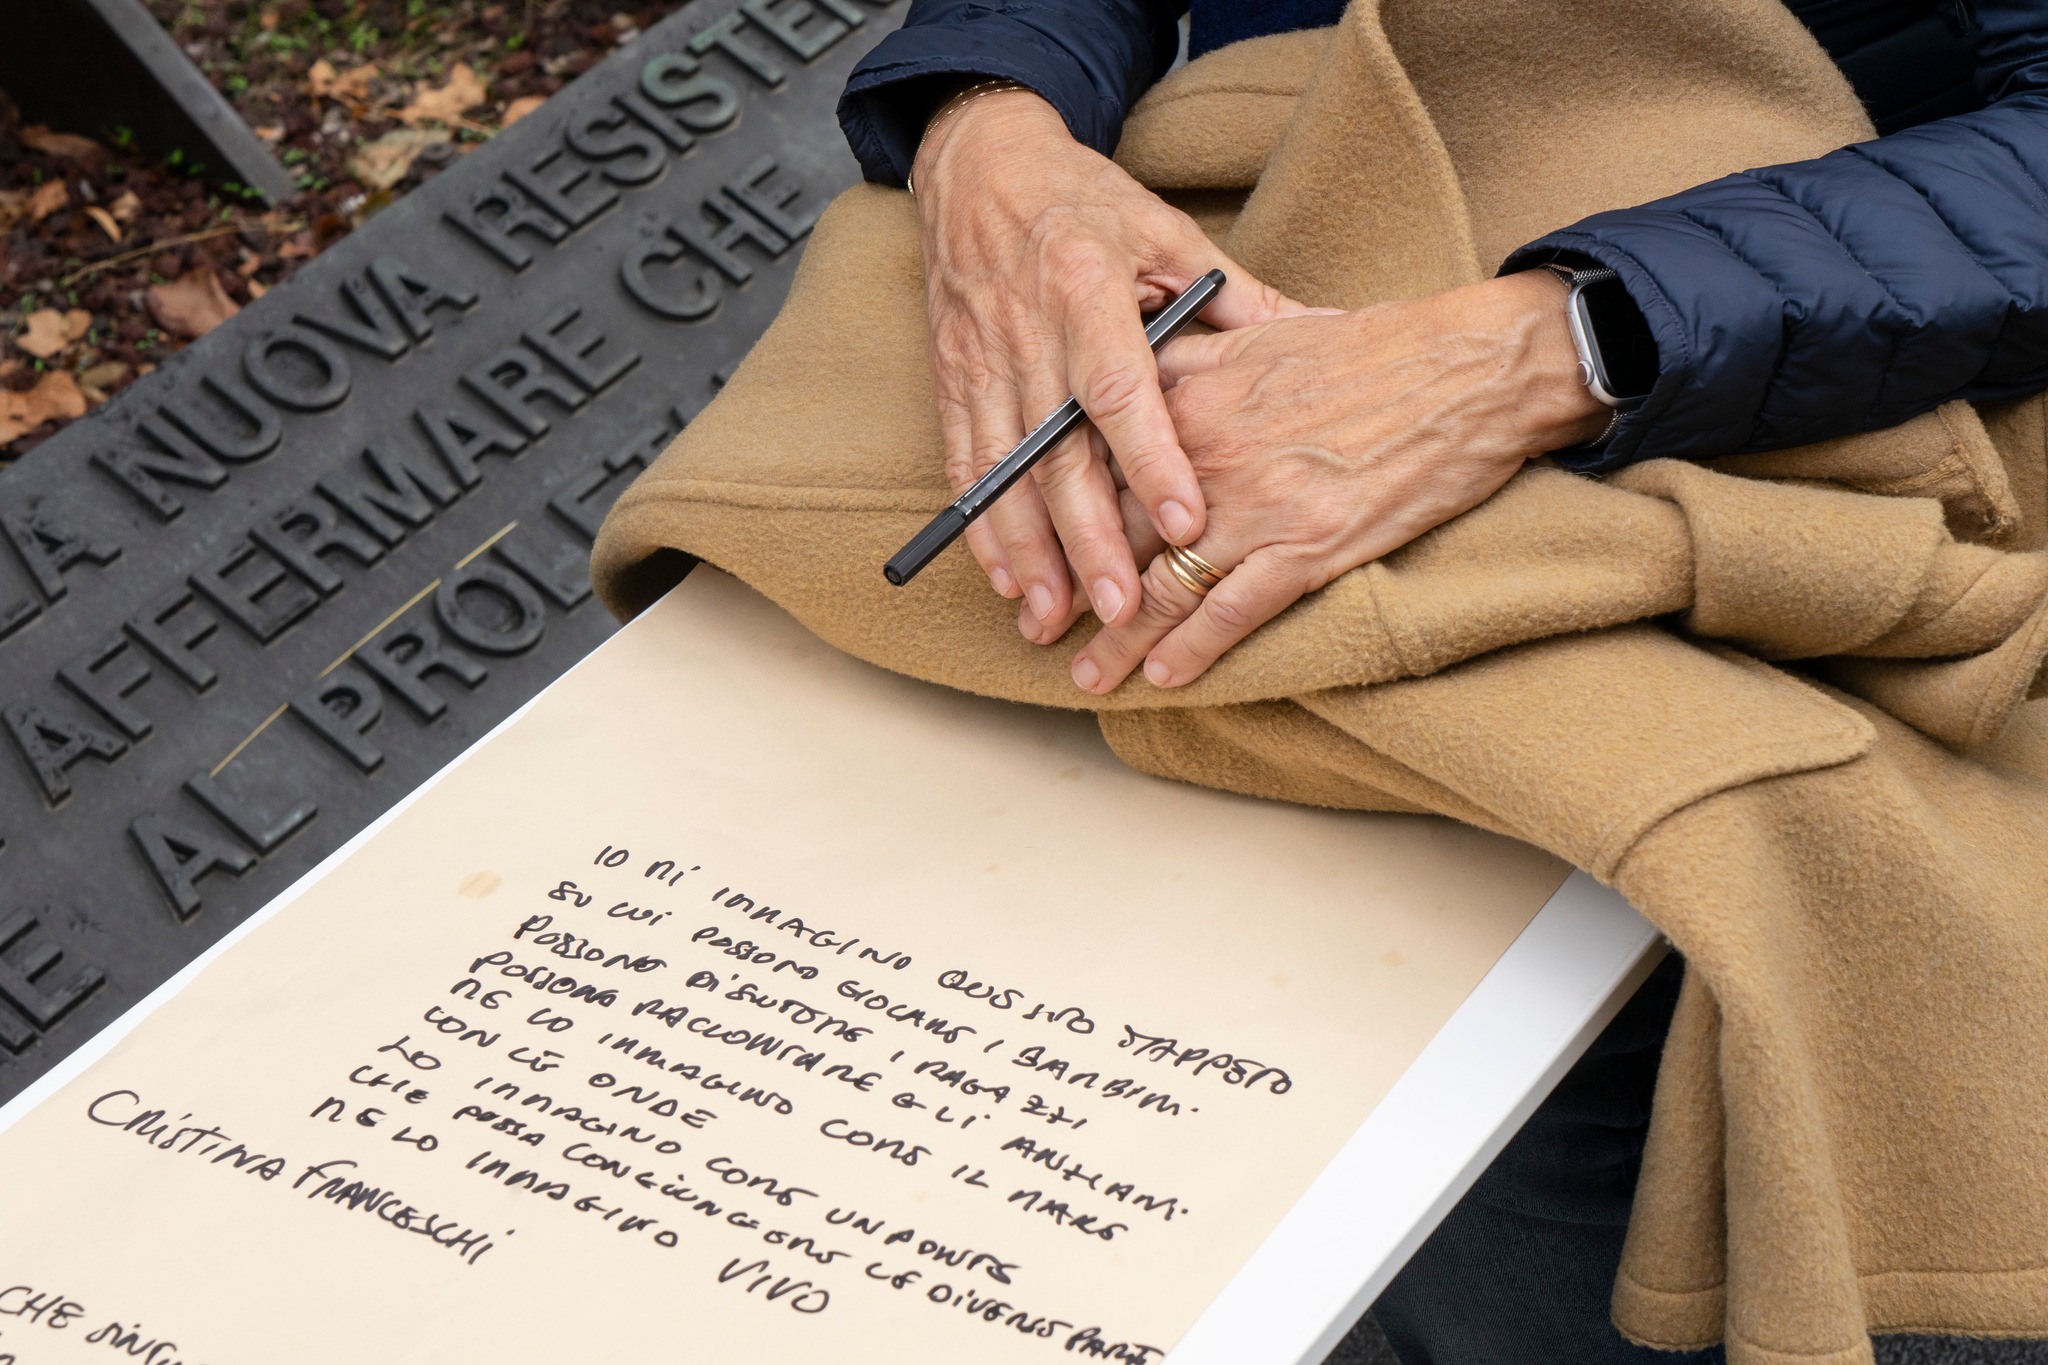 LA NUOVA RESISTEN
AFFERMARE CHE
AL PROLET
E
IO MI IMMAGINO QUESTO TAPPETO
SU CUI POSSONO GIOCARE I BAMBINI.
POSSONO DISCUTERE I RAGAZZI
POSSONO RACCONTARE GLI ANZIANI.
ME LO IMMAGINO COME IL MARE
CON LE ONDE
LO IMMAGINO COME UN PONTE
CHE POSSA CONGIUNGERE LE DIVERSE PARTI
ME LO IMMAGINO VIVO
CRISTINA FRANCESCHI
CHE